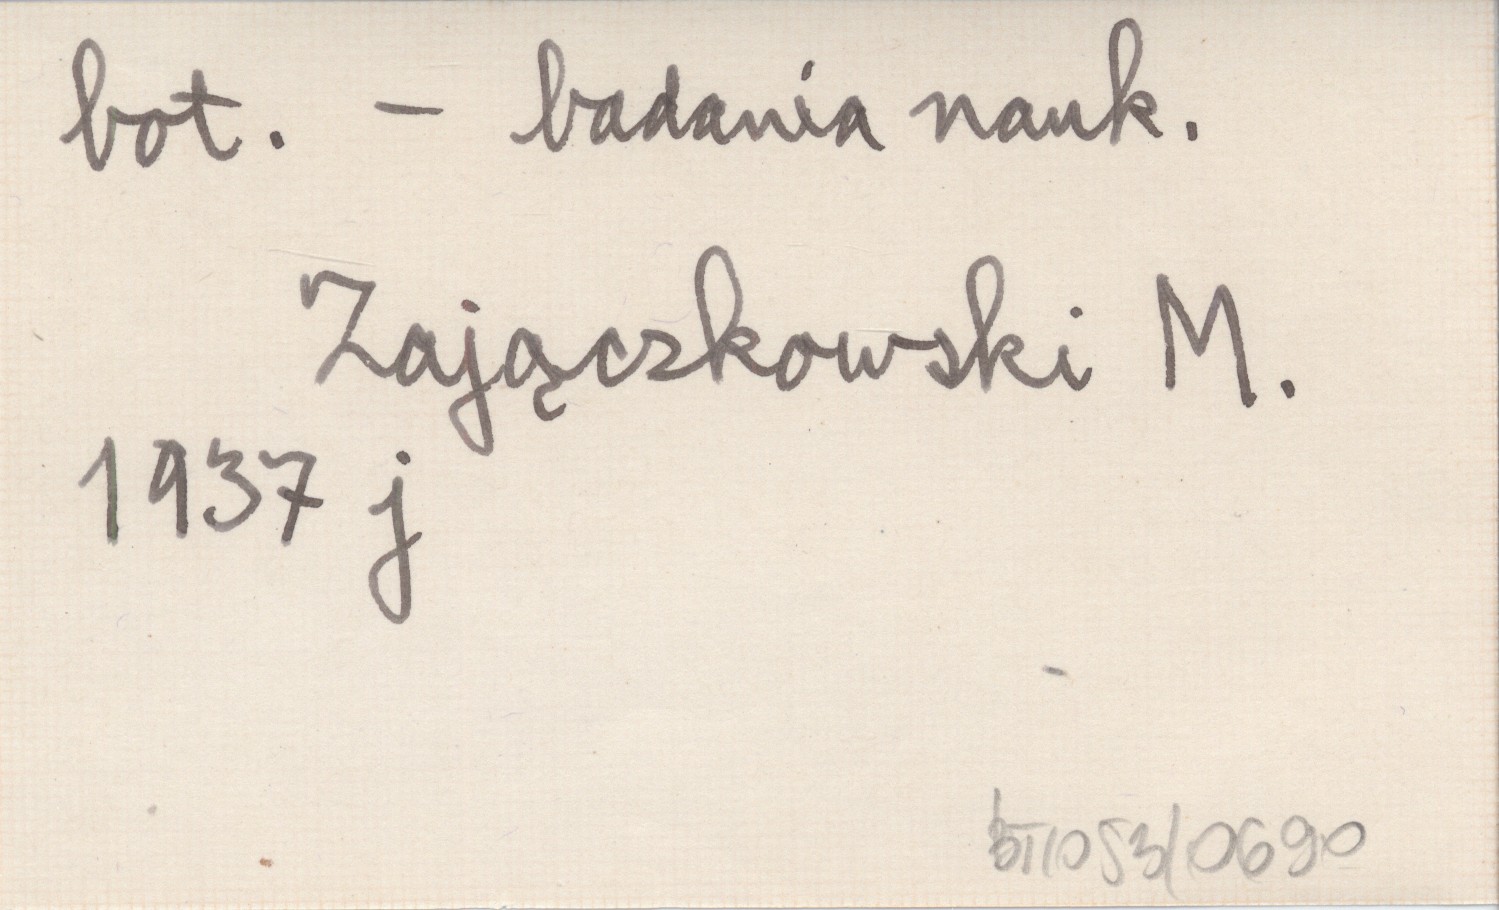 bot. - badania nauk.
Zajączkowski M.
1937 j
BT/053/0690